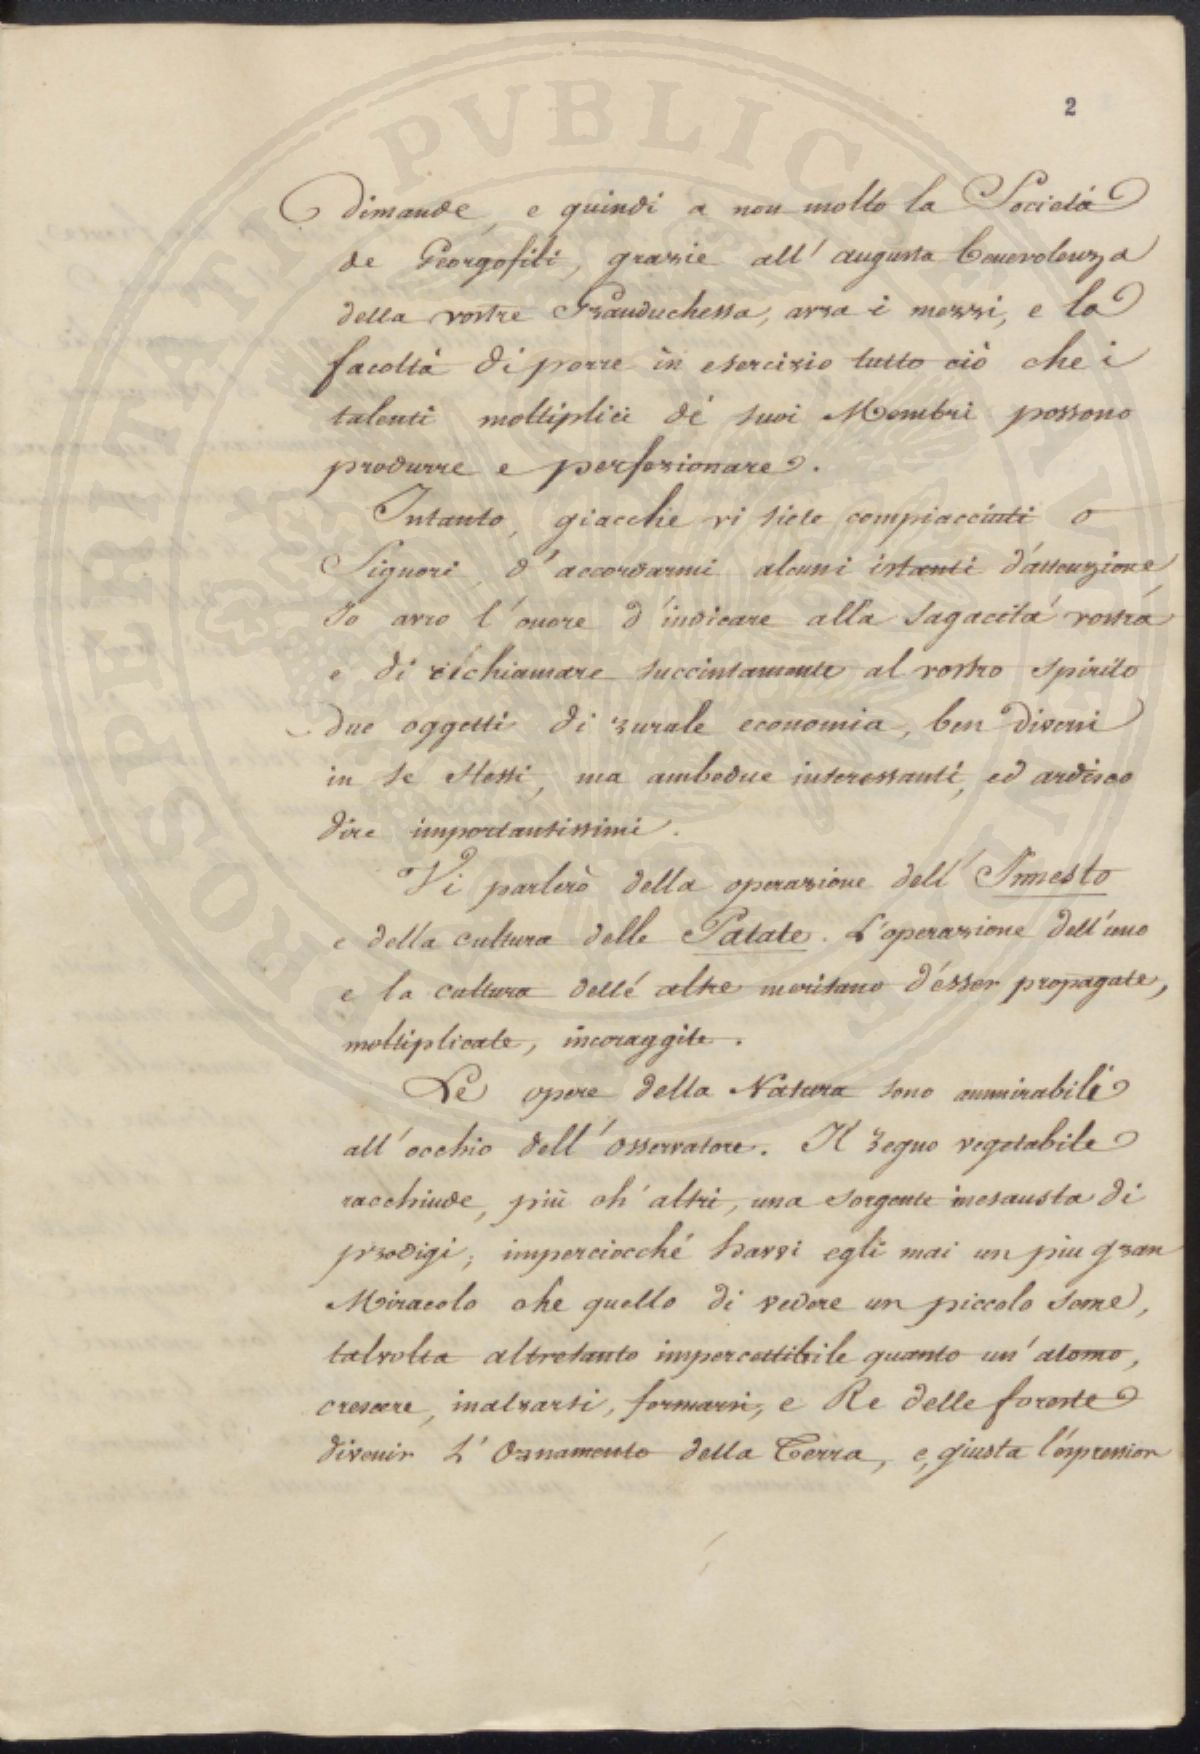 2
dimande, e quindi a non molto la Società
de Georgofili, grazie all' augusta benevolenza
della vostre Granduchessa, avra i mezzi, e la
facoltà di porre in esercizio tutto ciò che i
talenti moltiplici dé suoi Membri possono
produrre e perfezionare.
Intanto, giacche vi siete compiacciuti o
Signori, d'accordarmi alcuni istanti d'attenzione
Io avro l'onore d'indicare alla sagacità vostra
e di richiamare succintamente al vostro spirito
due oggetti di rurale economia, ben diversi
in se stessi, ma ambedue interessanti, ed ardisco
dire importantissimi.
Vi parlerò della operazione dell' Innesto
e della cultura delle Patate. L'operazione dell'uno
e la cultura delle altre meritano d'esser propagate,
moltiplicate, incoraggite.
Le opere della Natura sono ammirabili
all'occhio dell'Osservatore. Il regno vegetabile
racchiude, più ch'altri, una sorgente inesausta di
prodigi; imperciocché havvi egli mai un piu gran
Miracolo che quello di vedere un piccolo seme,
talvolta altretanto impercettibile quanto un'atomo,
crescere, inalzarsi, formarsi, e Re delle foreste
divenir L'Ornamento della Terra, e, giusta l'espression
PROSPERITATI PVBLICAE AVGENDAE